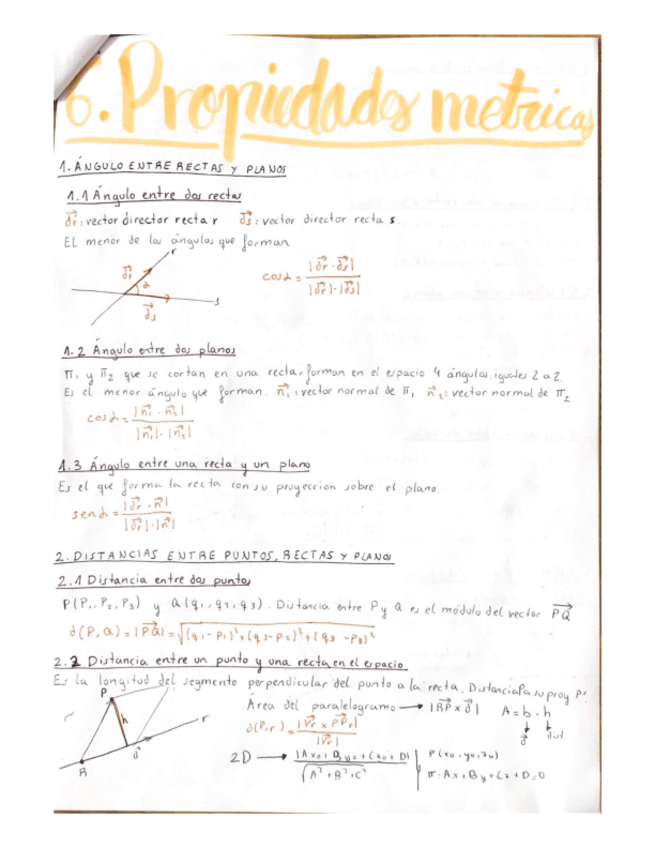 6. Propiedades metricas
1. ÁNGULO ENTRE RECTAS Y PLANOS
1.1 Ángulo entre dos rectas
d⃗r: vector director recta r   d⃗s: vector director recta s
El menor de los ángulos que forman
r
d⃗r
α
s
d⃗s
cos α = |d⃗r · d⃗s| / |d⃗r|·|d⃗s|
1.2 Ángulo entre dos planos
π1 y π2 que se cortan en una recta, forman en el espacio 4 ángulos iguales 2 a 2.
Es el menor ángulo que forman. n⃗1: vector normal de π1 n⃗2: vector normal de π2
cos α = |n⃗1 · n⃗2| / |n⃗1|·|n⃗2|
1.3 Ángulo entre una recta y un plano
Es el que forma la recta con su proyección sobre el plano.
sen α = |d⃗r · n⃗| / |d⃗r|·|n⃗|
2. DISTANCIAS ENTRE PUNTOS, RECTAS Y PLANOS
2.1 Distancia entre dos puntos
P(P1, P2, P3) y Q(q1, q2, q3). Distancia entre P y Q es el módulo del vector PQ⃗
d(P,Q) = |PQ⃗| = √(q1-p1)²+(q2-p2)²+(q3-p3)²
2.2 Distancia entre un punto y una recta en el espacio
Es la longitud del segmento perpendicular del punto a la recta. Distancia P a su proy P'
P
h
r
d⃗
R
Área del paralelogramo → |RP⃗ x d⃗|   A = b · h
d⃗ dist
d(P,r) = |V⃗r x PPr⃗| / |V⃗r|
2D → |Ax0 + By0 + Cz0 + D| / √A²+B²+C²   P(x0, y0, z0)
π: Ax+By+Cz+D=0